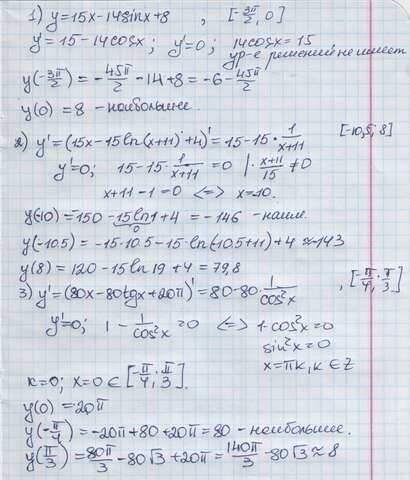 1) y=15x-14sinx+8 , [-3π/2, 0]
y'=15-14cosx; y'=0; 14cosx=15
ур-е решений не имеет
y(-3π/2)=-45π/2-14+8=-6-45π/2
y(0)=8 - наибольшее.
2) y'=(15x-15ln(x+11)+4)'=15-15·1/x+11 [-10,5; 8]
y'=0; 15-15·1/x+11=0 |·x+11/15≠0
x+11-1=0 <=> x=-10.
y(-10)=-150-15ln1+4=-146 - наим.
0
y(-10.5)=-15·10.5-15·ln(-10.5+11)+4≈-143
y(8)=120-15ln19+4=79,8
3) y'=(80x-80tgx+20π)'=80-80·1/cos²x , [-π/4; π/3]
y'=0; 1-1/cos²x=0 <=> 1-cos²x=0
sin²x=0
x=πk, k∈Z
k=0; x=0∈[-π/4; π/3].
y(0)=20π
y(-π/4)=-20π+80+20π=80 - наибольшее.
y(π/3)=80π/3-80√3+20π=140π/3-80√3≈8